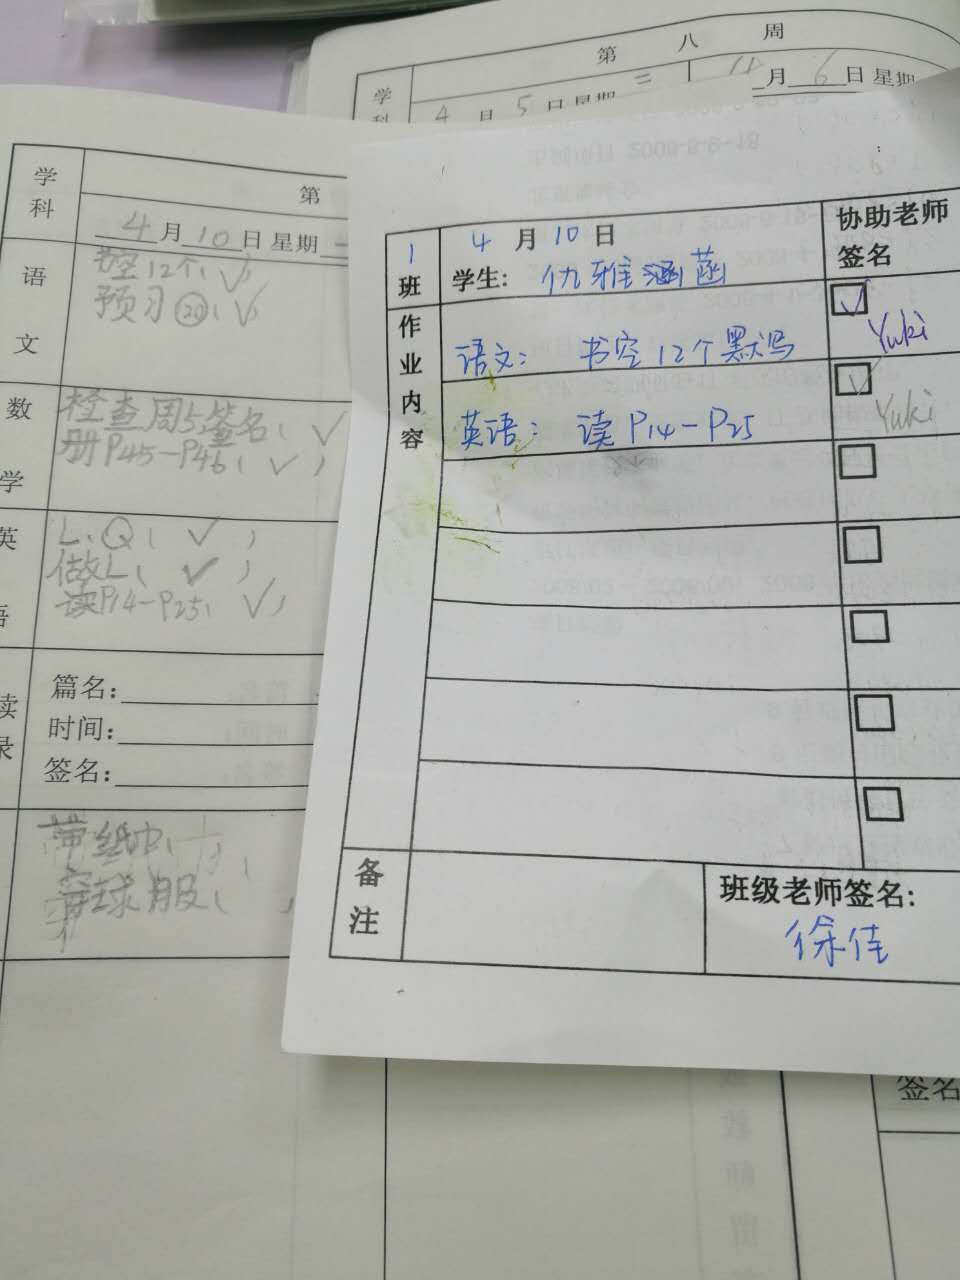 第 八 周
学科
4月5日 星期二
4月6日 星期
学科
第
4月10日 星期一
语文
书空12个（✓）
预习⑳（✓）
数学
检查周5签名（✓）
册P45-P46（✓）
英语
L、Q（✓）
做L（✓）
读P14-P25（✓）
读录
篇名:
时间:
签名:
带纸巾（
穿球服（ ）
1班
4月10日
学生: 仇雅涵菡
协助老师签名
作业内容
语文: 书空12个默写
☑ Yuki
英语: 读P14-P25
☑ Yuki
备注
班级老师签名:
徐佳
签名